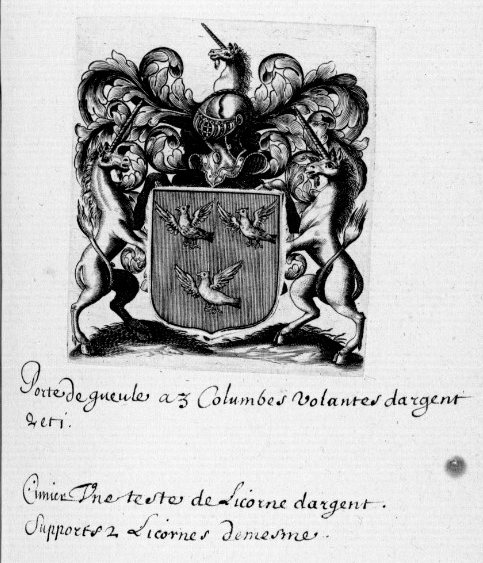 Porte de gueule a 3 Columbes volantes dargent
2 et 1.
Cimier Vne teste de Licorne dargent.
Supports 2 Licornes demesme.